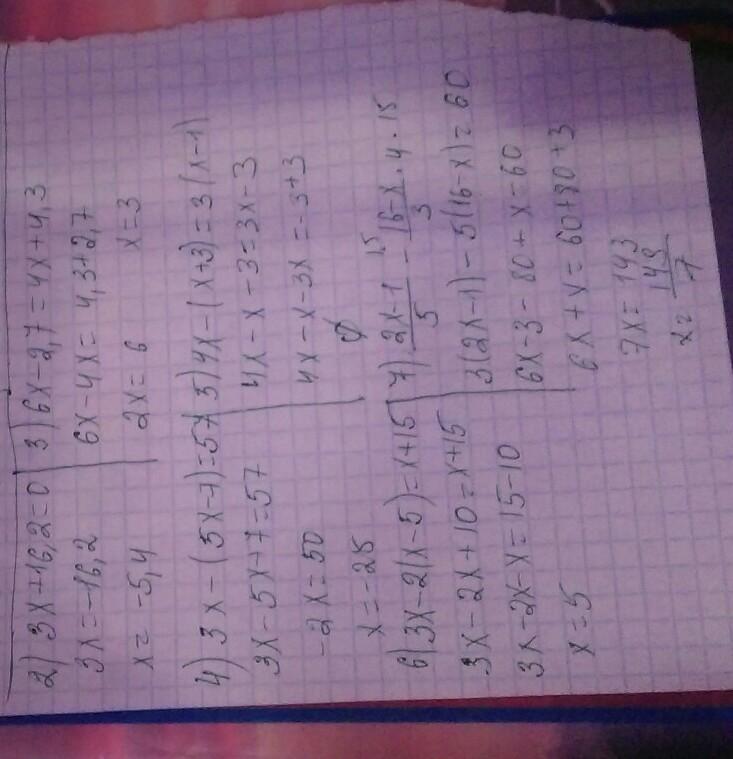 2) 3x+16,2=0
3x=-16,2
x=-5,4
3) 6x-2,7=4x+4,3
6x-4x=4,3+2,7
2x=6 x=3
4) 3x-(5x-7)=57
3x-5x+7=57
-2x=50
x=-25
5) 4x-(x+3)=3(x-1)
4x-x-3=3x-3
4x-x-3x=-3+3
∅
6) 3x-2(x-5)=x+15
3x-2x+10=x+15
3x-2x-x=15-10
x=5
7) 2x-1/5 15 - 16-x/3 · 4 · 15
3(2x-1)-5(16-x)=60
6x-3-80+x=60
6x+x=60+80+3
7x=143
x=143/7